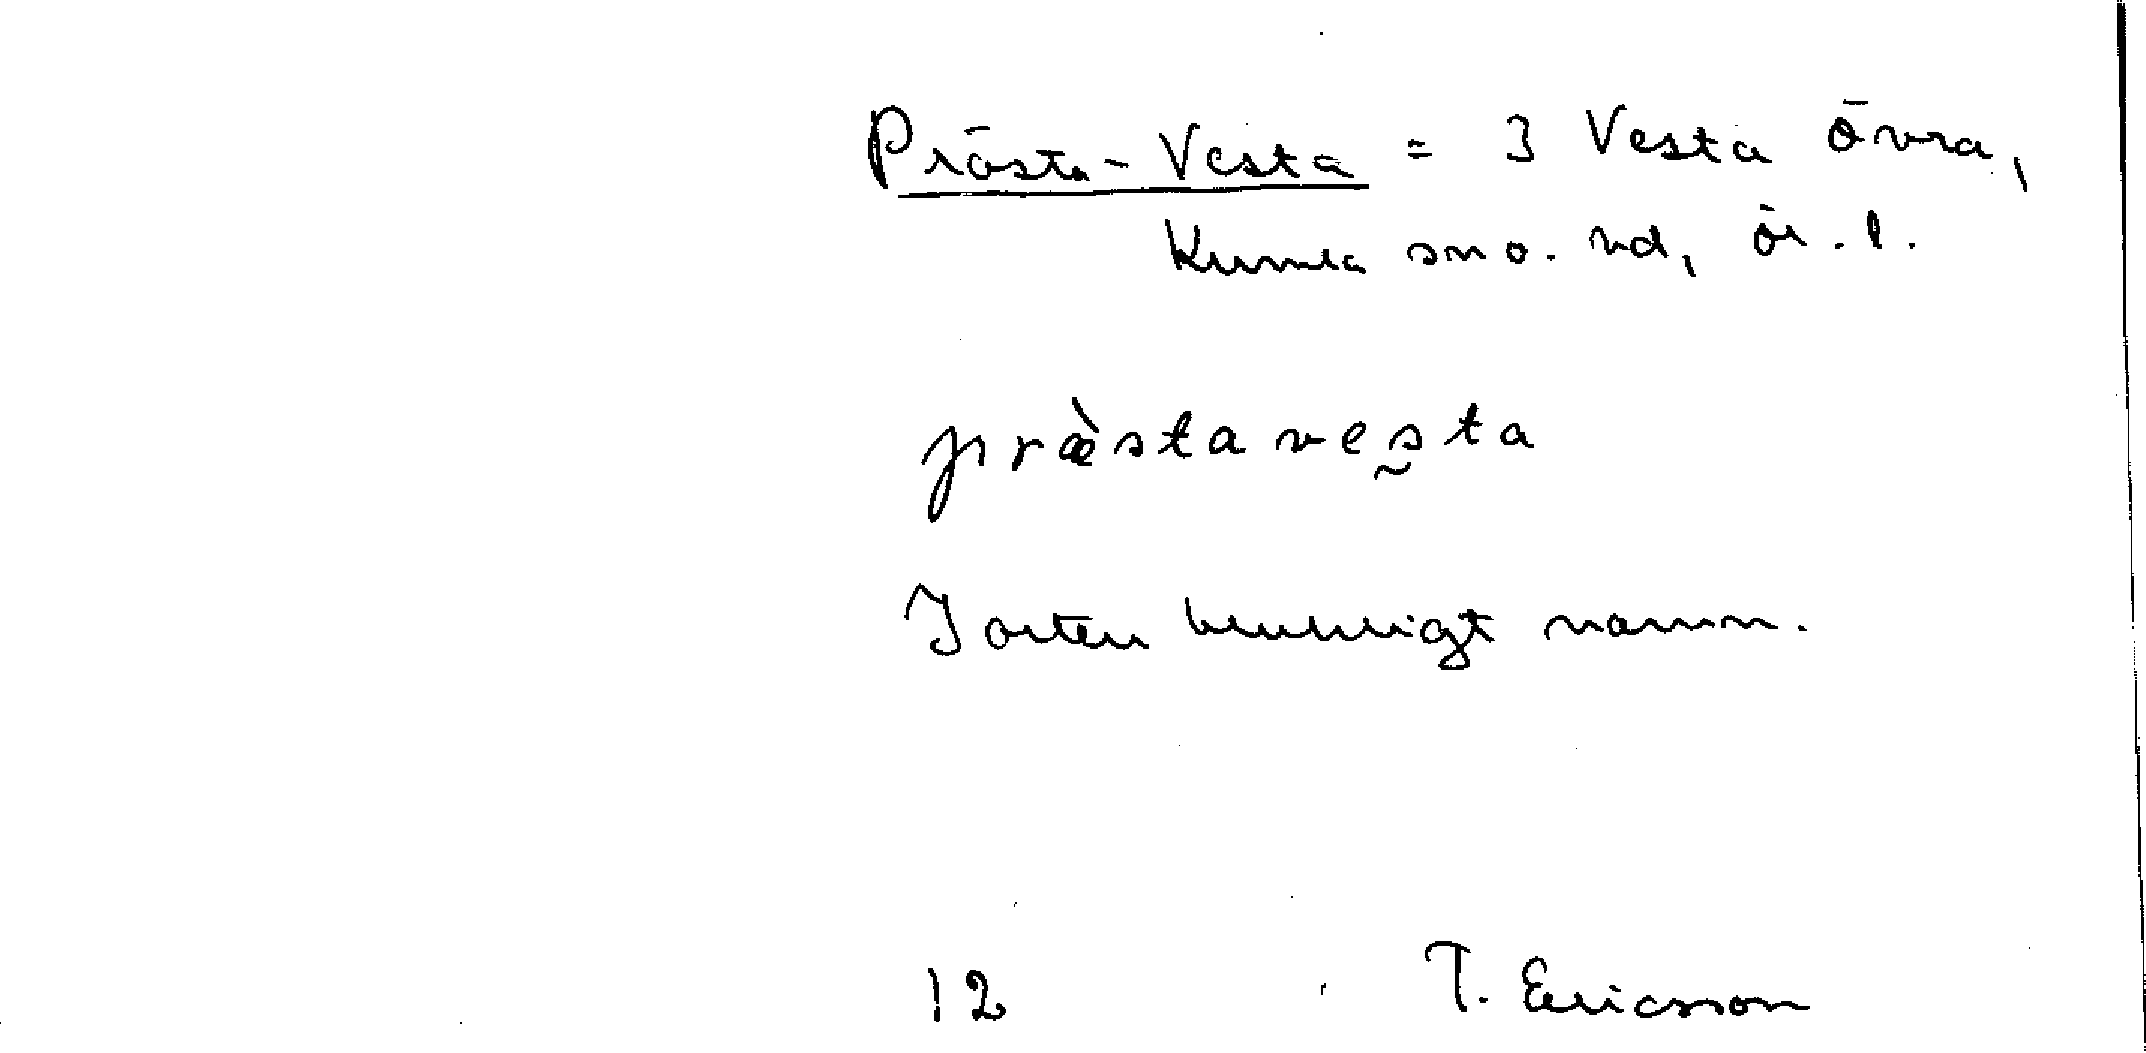 Prästa-Vesta = 3 Vesta övra,
Kumla sn o. hd, Ör. l.
præ̀stavesta
I orten brukligt namn.
12 T. Ericsson